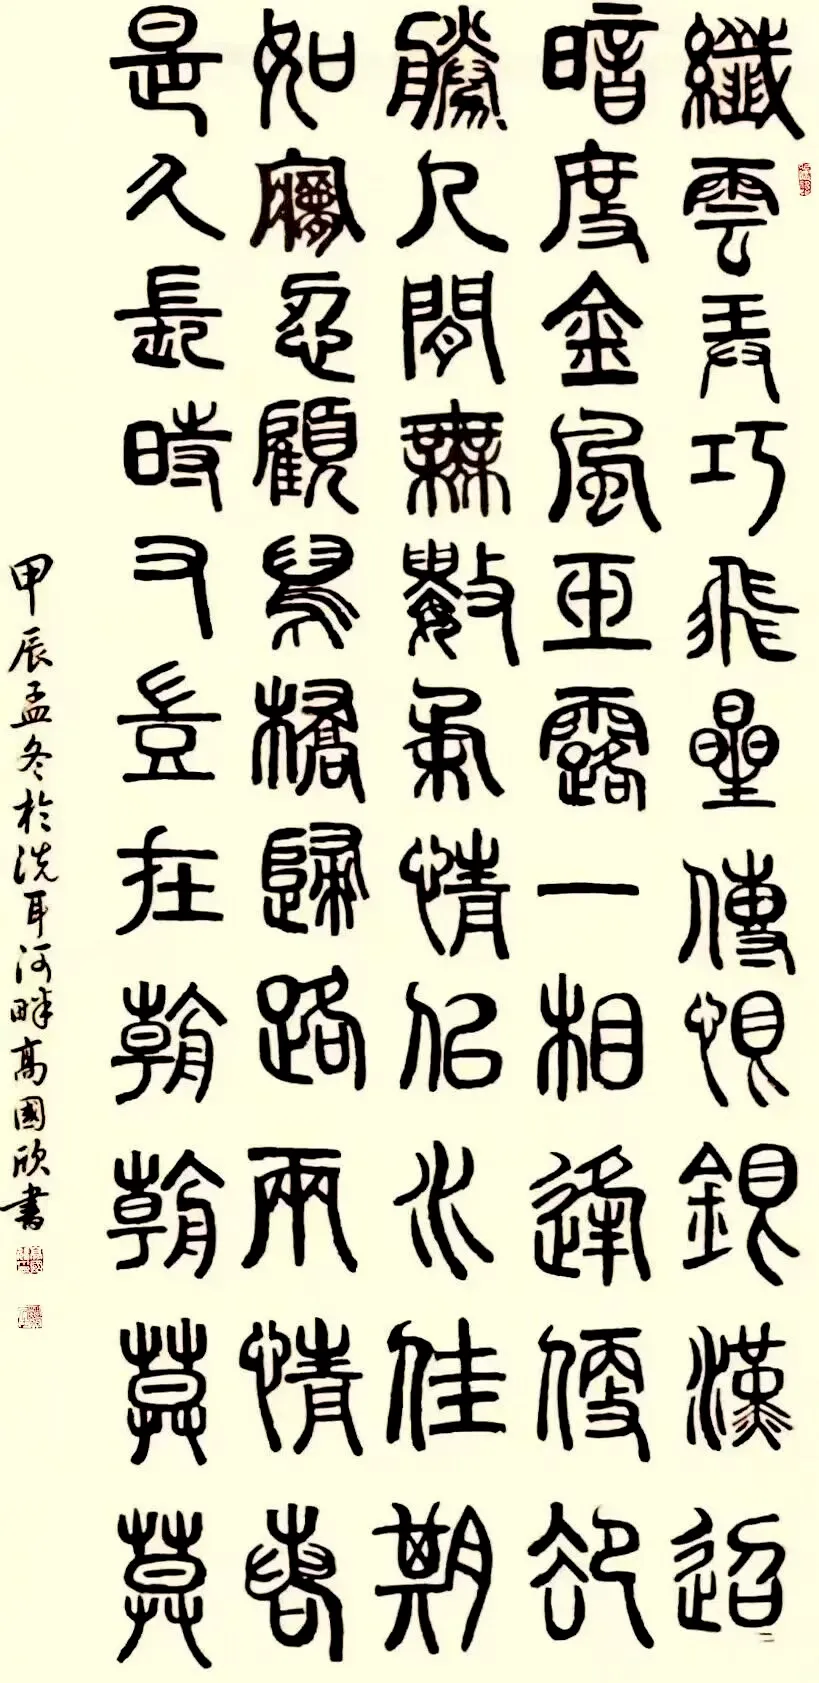 纖雲弄巧飛星傳恨銀漢迢〻
暗度金風玉露一相逢便卻
勝人間無數柔情似水佳期
如夢忍顧鵲橋歸路兩情若
是久長時又豈在朝朝暮暮
甲辰孟冬於洗耳河畔高國欣書